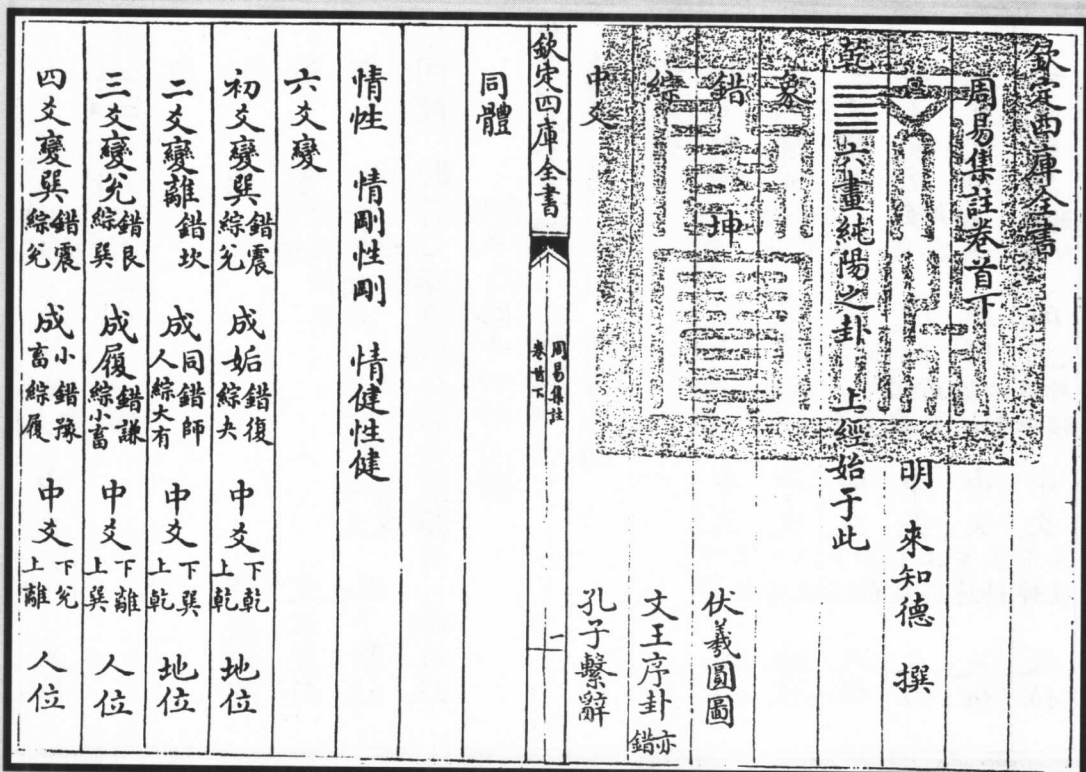 欽定四庫全書
周易集註卷首下
明 來知德 撰
乾 六畫純陽之卦 上經始于此
象
錯 坤 伏羲圓圖
綜 文王序卦 亦錯
中爻 孔子繫辭
欽定四庫全書 周易集註 卷首下 一
同體
情性 情剛性剛 情健性健
六爻變
初爻變巽 錯震 綜兌 成姤 錯復 綜夬 中爻 下乾 上乾 地位
二爻變離 錯坎 成同人 錯師 綜大有 中爻 下巽 上乾 地位
三爻變兌 錯艮 綜巽 成履 錯謙 綜小畜 中爻 下離 上巽 人位
四爻變巽 錯震 綜兌 成小畜 錯豫 綜履 中爻 下兌 上離 人位